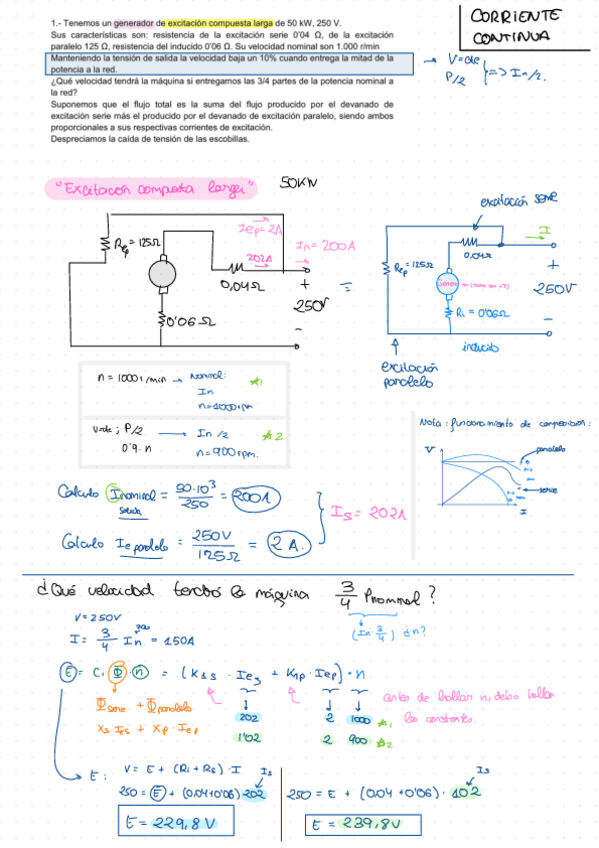 1.- Tenemos un generador de excitación compuesta larga de 50 kW, 250 V.
Sus características son: resistencia de la excitación serie 0'04 Ω, de la excitación
paralelo 125 Ω, resistencia del inducido 0'06 Ω. Su velocidad nominal son 1.000 r/min
Manteniendo la tensión de salida la velocidad baja un 10% cuando entrega la mitad de la
potencia a la red.
¿Qué velocidad tendrá la máquina si entregamos las 3/4 partes de la potencia nominal a
la red?
Suponemos que el flujo total es la suma del flujo producido por el devanado de
excitación serie más el producido por el devanado de excitación paralelo, siendo ambos
proporcionales a sus respectivas corrientes de excitación.
Despreciamos la caída de tensión de las escobillas.
CORRIENTE
CONTINUA
→ V=cte
P/2 } => In/2.
"Excitación compuesta larga"
50KW
Rep = 125Ω
Iep = 2A
202A
In = 200A
0,04Ω
+
250V
-
0'06Ω
=
excitación serie
I
0.04Ω
Rep = 125Ω
+
250V
-
Ri = 0'06Ω
inducido
excitación
paralelo
n = 1000 r/min → Nominal: *1
In
n=1000rpm
V=cte ; P/2 → In/2 *2
0'9·n n=900rpm.
Nota: funcionamiento de compensación:
V
paralelo
serie
I
Calculo Inominal = 50·10³ / 250 = 200A
salida
Calculo Ie paralelo = 250V / 125Ω = 2A.
} Is = 202A
¿Qué velocidad tendrá la máquina 3/4 Pnominal?
V=250V
I = 3/4 In = 150A
200
(In·3/4) ¿n?
E = C·Φ·n = (K1s · Ies + K1p · Iep)·n
Φserie + Φparalelo
Xs Ies + Xp·Iep
antes de hallar n, debo hallar
las constantes.
202 2 1000 *1
102 2 900 *2
E: V = E + (Ri + Rs)·I Is
250 = E + (0.04+0'06)·202
E = 229,8V
Is
250 = E + (0.04+0'06)·102
E = 239,8V